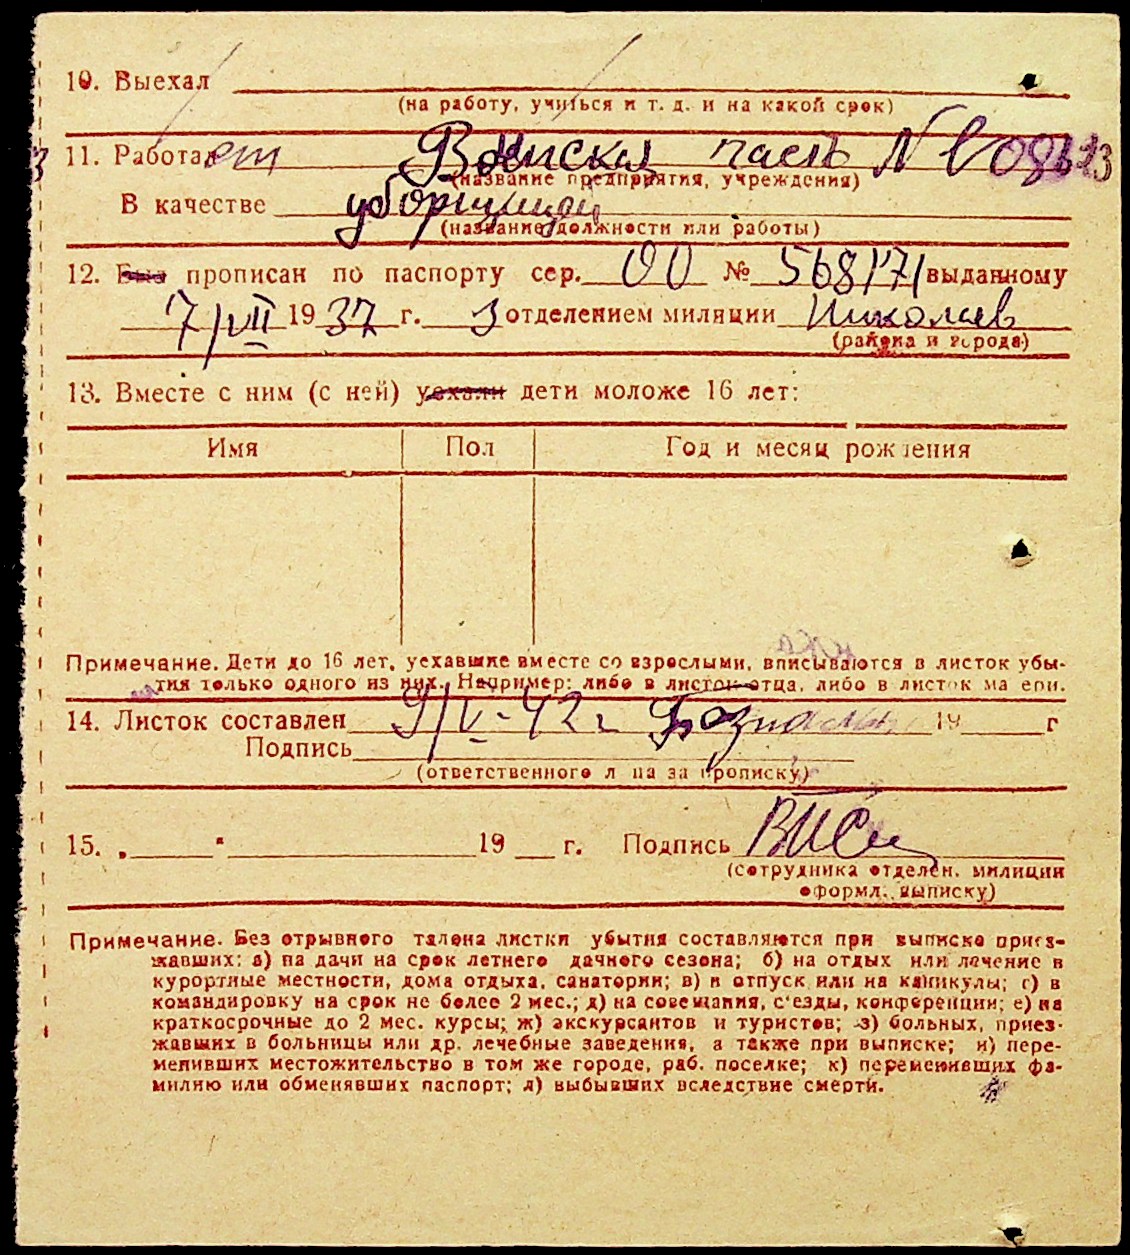 10. Выехал
(на работу, учиться и т. д. и на какой срок)
11. Работает Воинская часть №
(название предприятия, учреждения)
В качестве уборщицей
(название должности или работы)
12. Был прописан по паспорту сер. ОО № 568171 выданному
7/VII 1937 г. 3 отделением милиции Николаев
(района и города)
13. Вместе с ним (с ней) уехали дети моложе 16 лет:
Имя Пол Год и месяц рождения
Примечание. Дети до 16 лет, уехавшие вместе со взрослыми, вписываются в листок убы-
тия только одного из них. Например: либо в листок отца, либо в листок матери.
14. Листок составлен 9/V-42 г 19 г
Подпись
(ответственного лица за прописку)
15. „ “ 19 г. Подпись
(сотрудника отделен. милиции
оформл. выписку)
Примечание. Без отрывного талона листки убытия составляются при выписке приез-
жавших: а) на дачи на срок летнего дачного сезона; б) на отдых или лечение в
курортные местности, дома отдыха, санатории; в) в отпуск или на каникулы; г) в
командировку на срок не более 2 мес.; д) на совещания, съезды, конференции; е) на
краткосрочные до 2 мес. курсы; ж) экскурсантов и туристов; з) больных, приез-
жавших в больницы или др. лечебные заведения, а также при выписке; и) пере-
менивших местожительство в том же городе, раб. поселке; к) переменивших фа-
милию или обменявших паспорт; л) выбывших вследствие смерти.